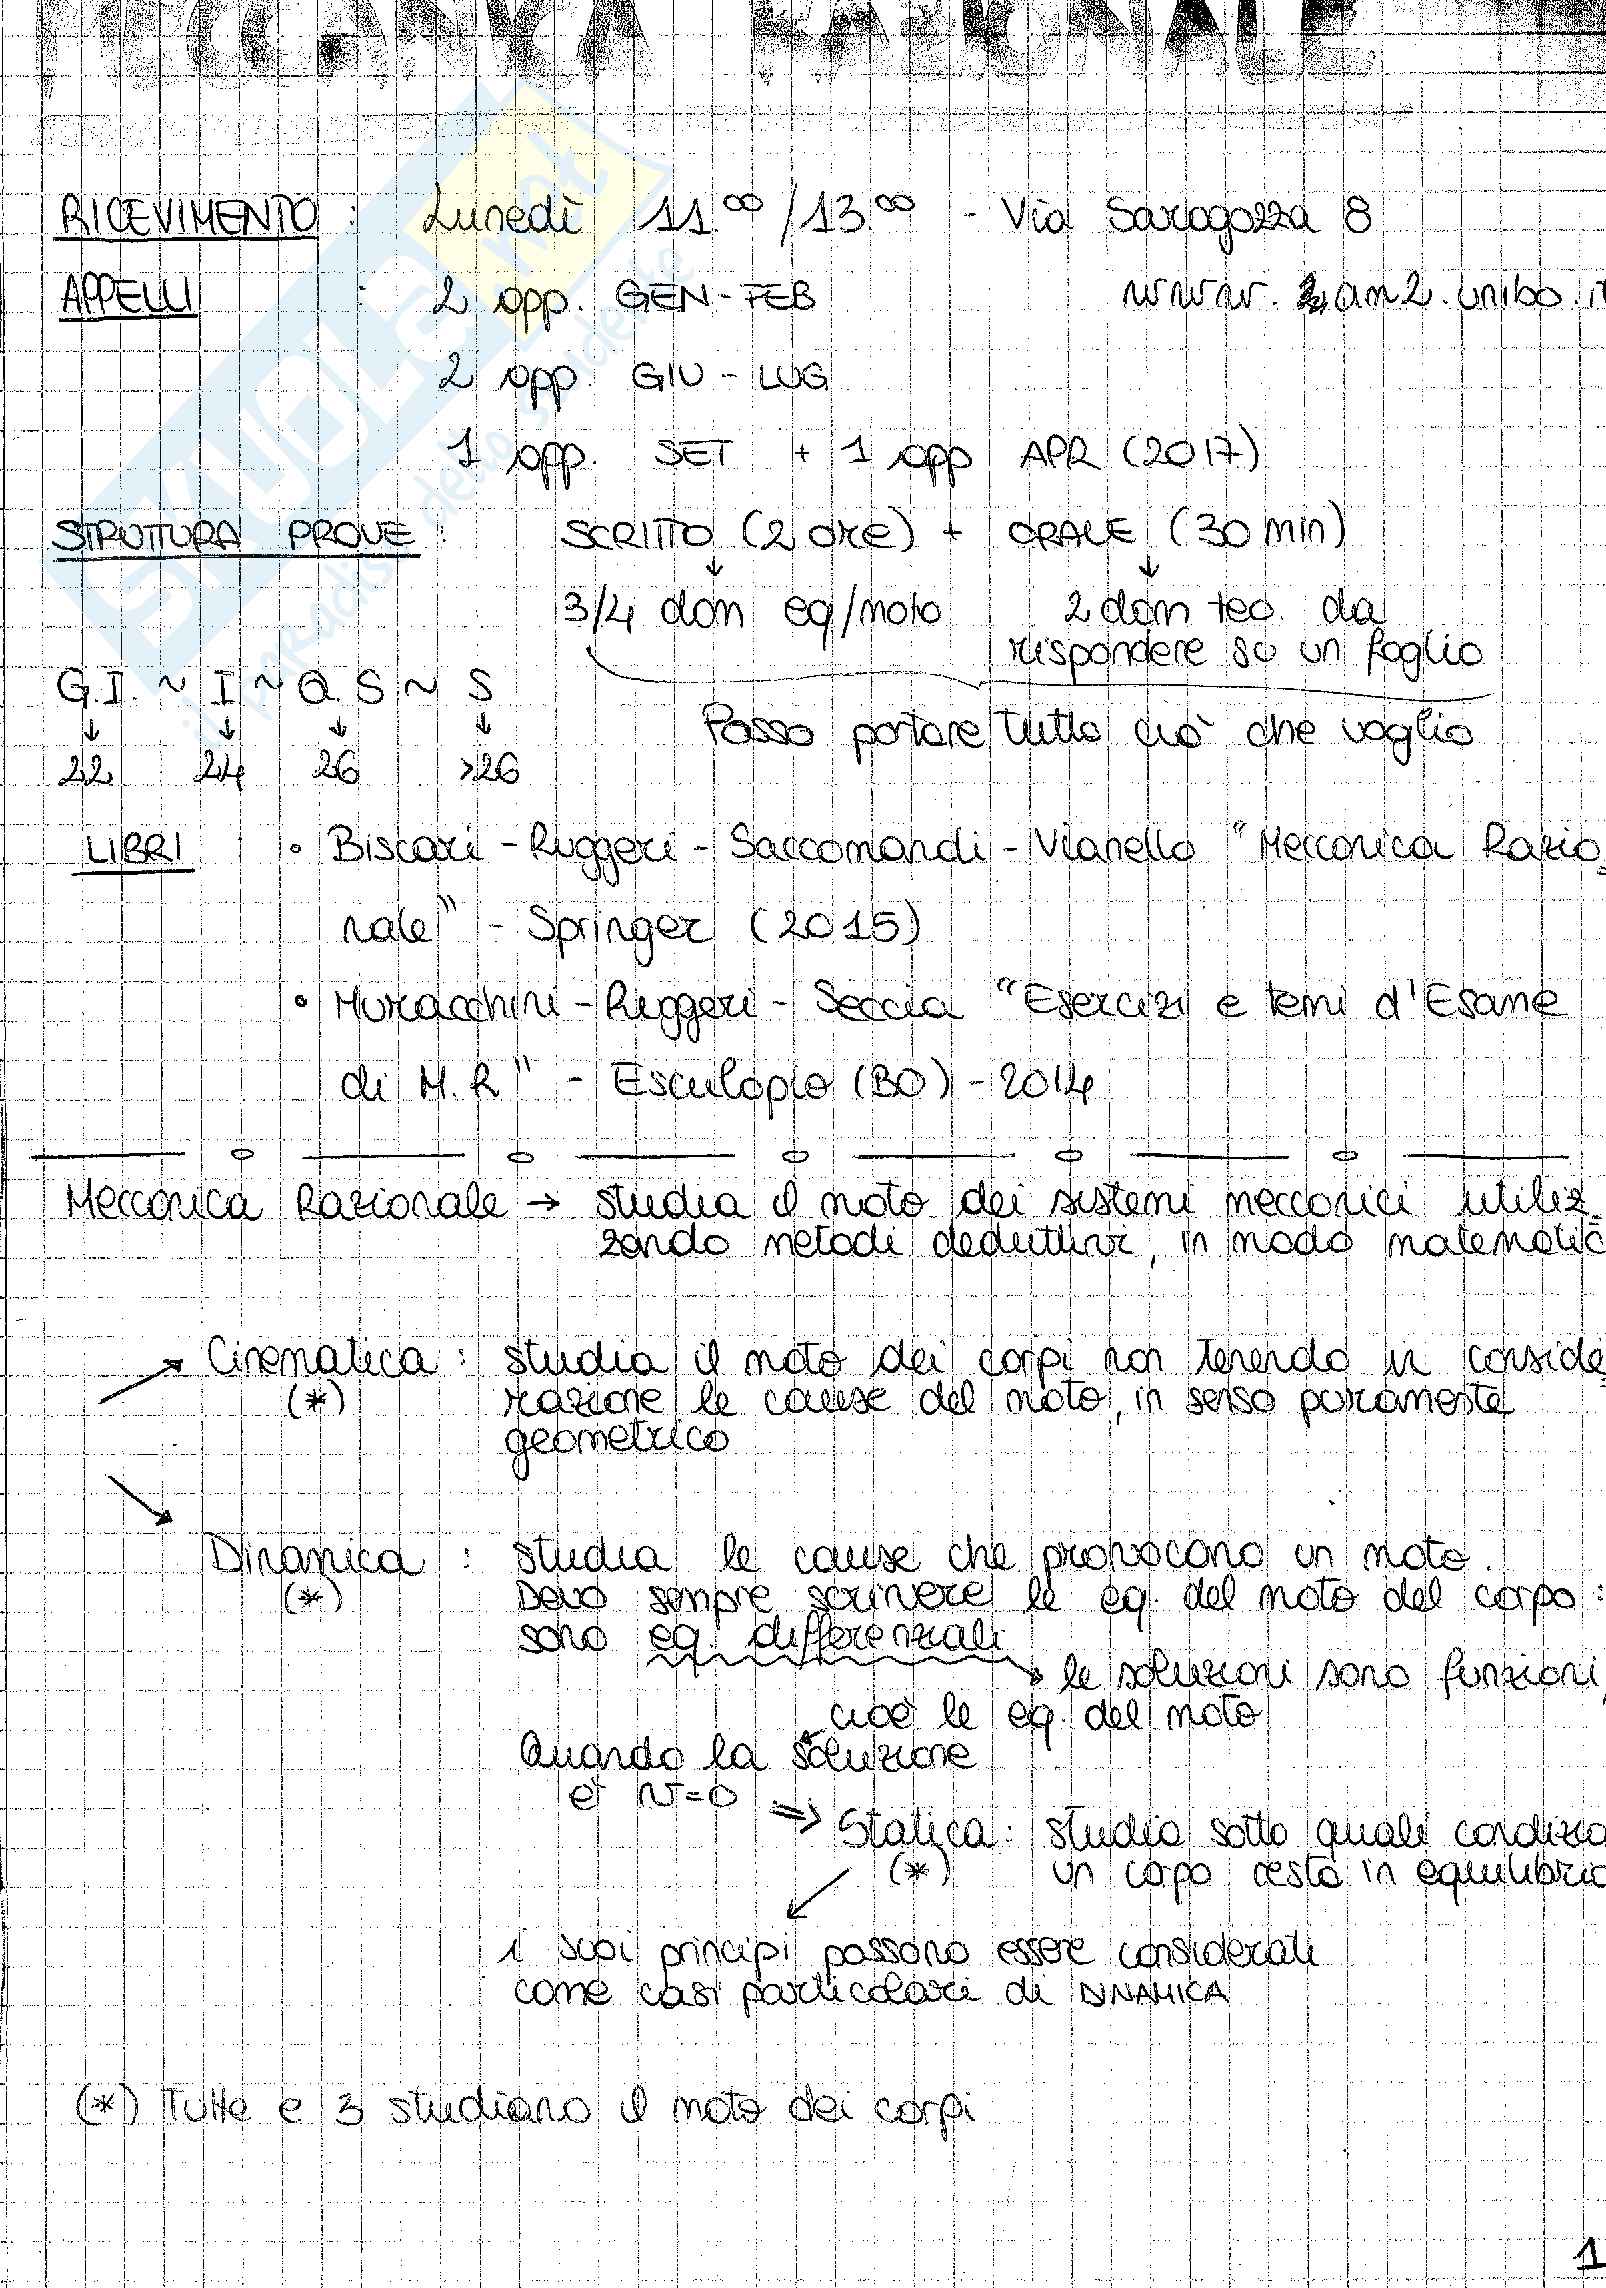 MECCANICA RAZIONALE
RICEVIMENTO : Lunedì 11.00/13.00 - Via Saragozza 8
APPELLI : 2 opp. GEN-FEB www.am2.unibo.it
2 opp. GIU - LUG
1 opp. SET + 1 opp APR (2017)
STRUTTURA PROVE : SCRITTO (2 ore) + ORALE (30 min)
↓ ↓
3/4 dom eq/moto 2 dom teo. da
rispondere su un foglio
G.I. ~ I ~ Q.S ~ S
↓ ↓ ↓ ↓
Posso portare tutto ciò che voglio
22 24 26 >26
LIBRI • Biscari - Ruggeri - Saccomandi - Vianello "Meccanica Razio
nale" - Springer (2015)
• Muracchini - Ruggeri - Seccia "Esercizi e temi d'Esame
di M.R" - Esculapio (BO) - 2014
Meccanica Razionale → studia il moto dei sistemi meccanici utiliz
zando metodi deduttivi, in modo matematic
→ Cinematica : studia il moto dei corpi non tenendo in conside
(*) razione le cause del moto, in senso puramente
geometrico
Dinamica : studia le cause che provocano un moto.
(*) Devo sempre scrivere le eq. del moto del corpo :
sono eq. differenziali
→ le soluzioni sono funzioni,
cioè le eq. del moto
Quando la soluzione
è v=0 ⇒ Statica : studia sotto quali condizio
(*) un corpo resta in equilibrio
i suoi principi possono essere considerati
come casi particolari di DINAMICA
(*) Tutte e 3 studiano il moto dei corpi
1